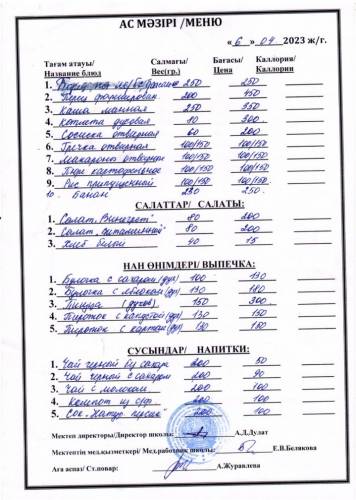 АС МӘЗІРІ /МЕНЮ
« 6 » 04 2023 ж/г.
Тағам атауы/ Салмағы/ Бағасы/ Каллория/
Название блюд Вес(гр.) Цена Каллории
1. 250 250
2. 200 450
3. Каша манная 250 350
4. Котлета духовая 80 300
5. Сосиска отварная 60 200
6. Гречка отварная 100/150 100/150
7. Макароны отварные 100/150 100/150
8. Пюре картофельное 100/150 100/150
9. Рис припущенный 100/150 100/150
10. Банан 230 250
САЛАТТАР/ САЛАТЫ:
1. Салат "Винегрет" 80 200
2. Салат "витаминный" 80 200
3. Хлеб белый 40 15
НАН ӨНІМДЕРІ/ ВЫПЕЧКА:
1. Булочка с сахаром (дух) 100 130
2. Булочка с яблоком (дух) 130 180
3. Пицца (духов) 150 300
4. Пирожок с капустой (дух) 130 150
5. Пирожок с картош (дух) 130 150
СУСЫНДАР/ НАПИТКИ:
1. Чай черный б/у сахара 200 50
2. Чай черный с сахаром 200 90
3. Чай с молоком 200 100
4. Компот из с/ф 200 100
5. Сок 200 100
Мектеп директоры/Директор школы: А.Д.Дулат
Мектептің мед.қызметкері/ Мед.работник школы: Е.В.Белякова
Аға аспаз/ Ст.повар: А.Журавлева